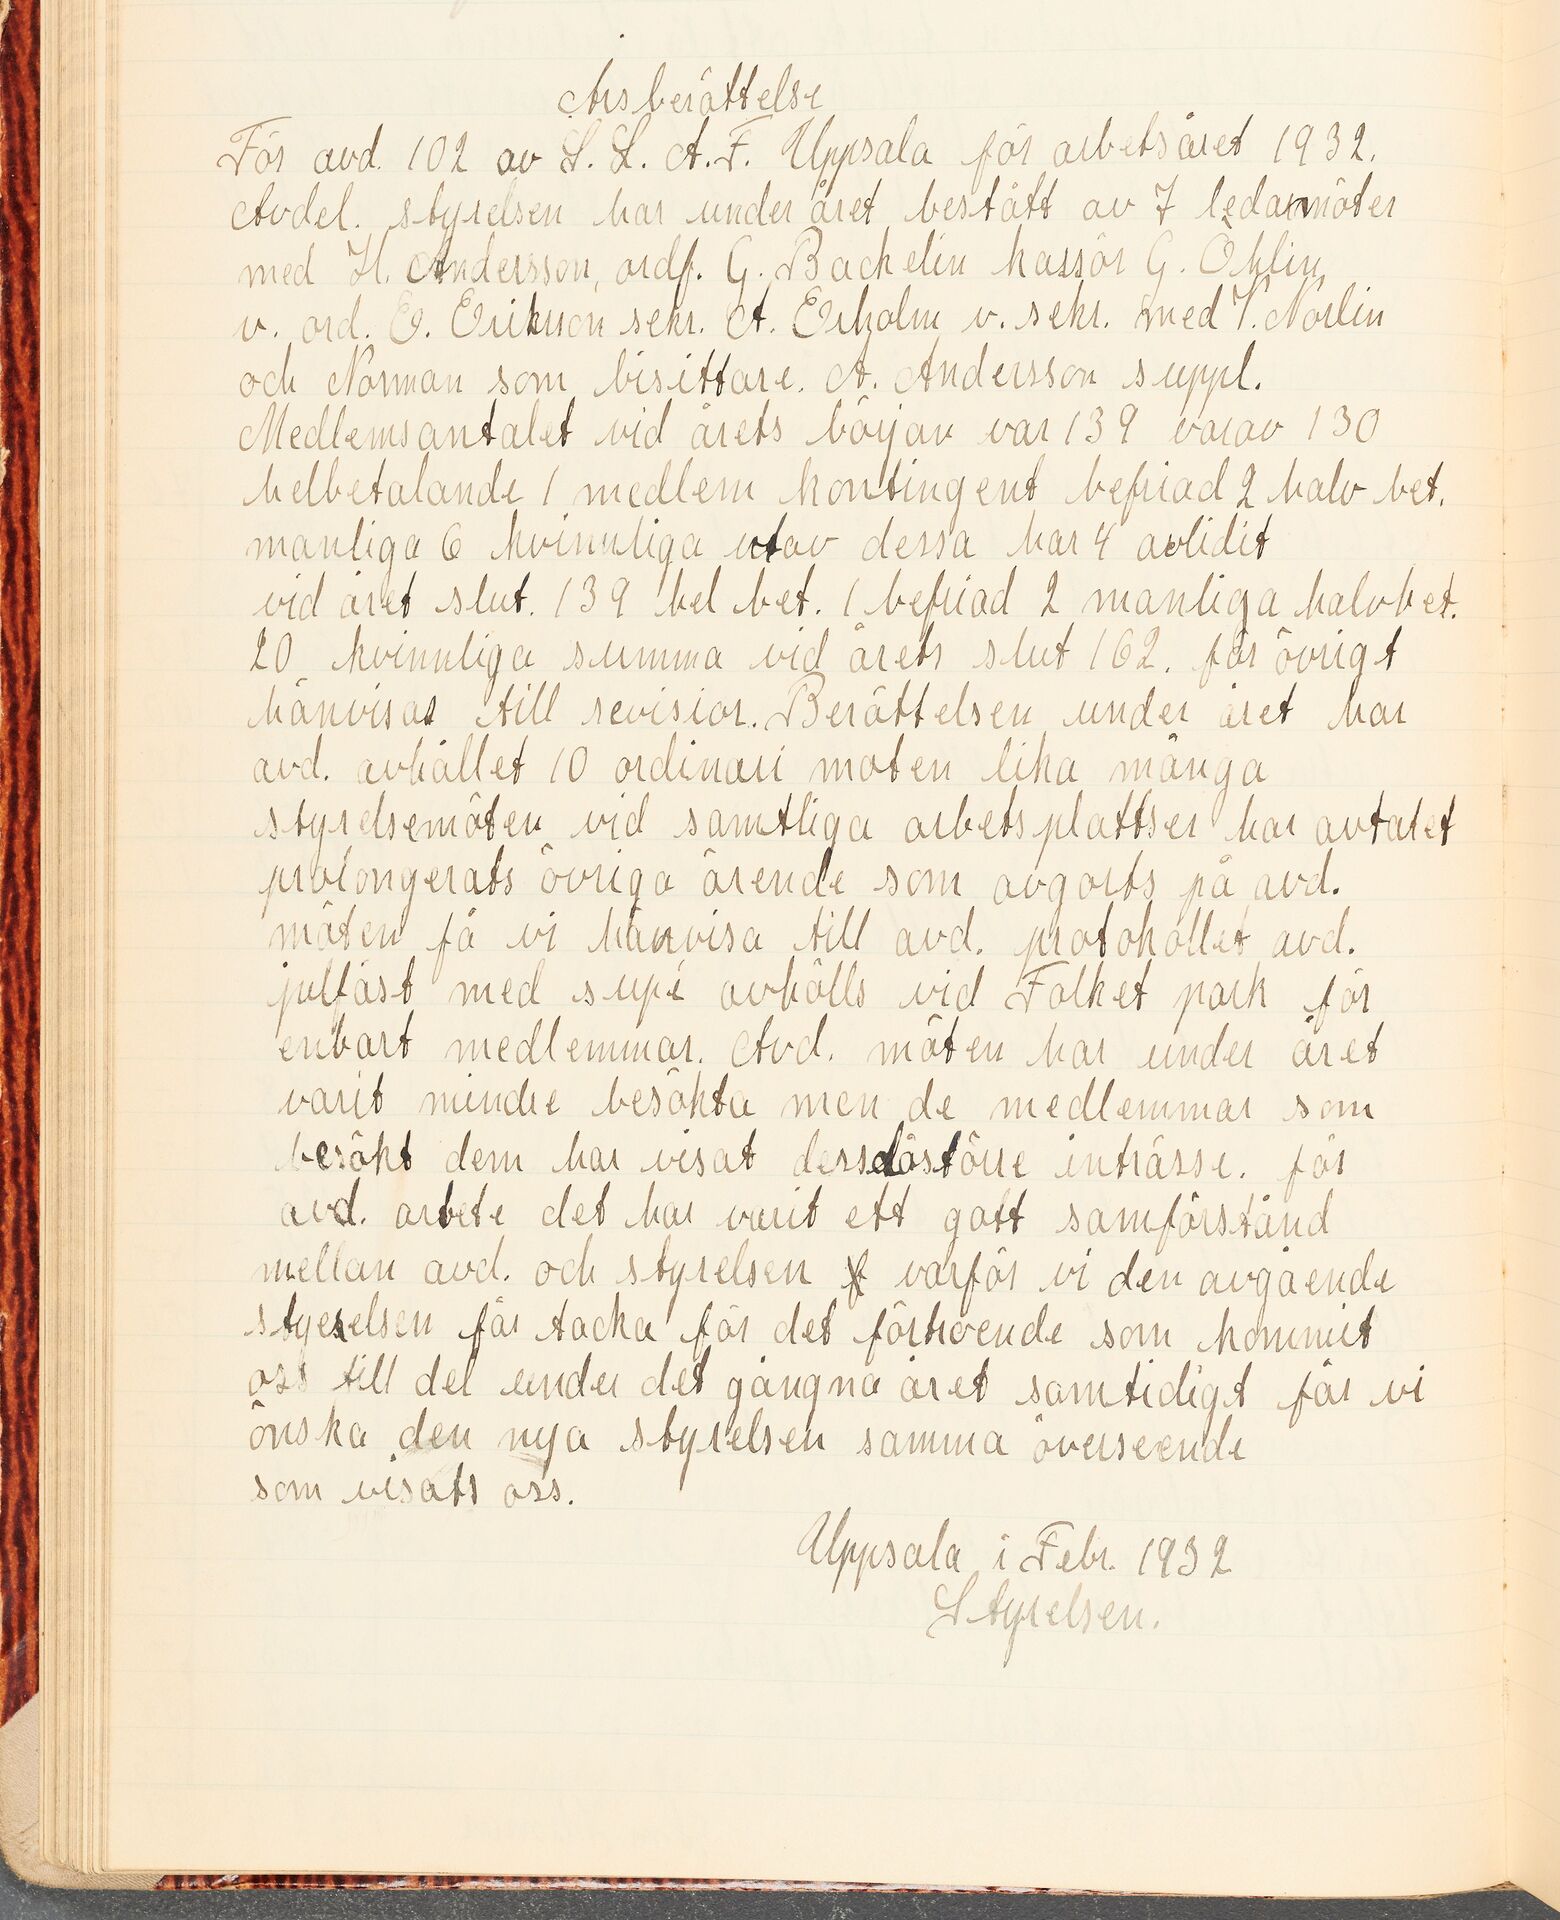 Årsberättelse
För avd. 102 av S. L. A. F. Uppsala för arbetsåret 1932.
Avdel. styrelsen har under året bestått av 7 ledarmöter
med H. Andersson, ordf. G. Backelin kassör G. Öhlin
v. ord. E. Erikson sekr. A. Ekholm v. sekr. med V. Norlin
och Norman som bisittare. A. Andersson suppl.
Medlemsantalet vid årets början var 139 varav 130
helbetalande 1 medlem kontingent befriad 2 halv bet.
manliga 6 kvinnliga utav dessa har 4 avlidit
vid året slut. 139 hel bet. 1 befriad 2 manliga halv bet.
20 kvinnliga summa vid årets slut 162. för övrigt
hänvisas till revisior. Berättelsen under året har
avd. avhållet 10 ordinari möten lika många
styrelsemöten vid samtliga arbetsplattser har avtalet
prolongerats övriga ärende som avgorts på avd.
möten få vi hänvisa till avd. protokollet avd.
julfäst med supé avhölls vid Folket park för
enbart medlemmar. Avd. möten har under året
varit mindre besökta men de medlemmar som
besökt dem har visat dessdöstörre inträsse. för
avd. arbete det har varit ett gott samförstånd
mellan avd. och styrelsen varför vi den avgående
styrelsen får tacka för det förtroende som kommit
oss till del under det gångna året samtidigt får vi
önska den nya styrelsen samma överseende
som visats oss.
Uppsala i Febr. 1932
Styrelsen.